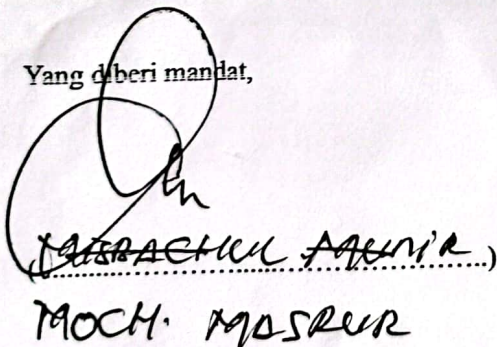 Yang diberi mandat,
(MISBACHUL MUNIR)
MOCH. MASRUR